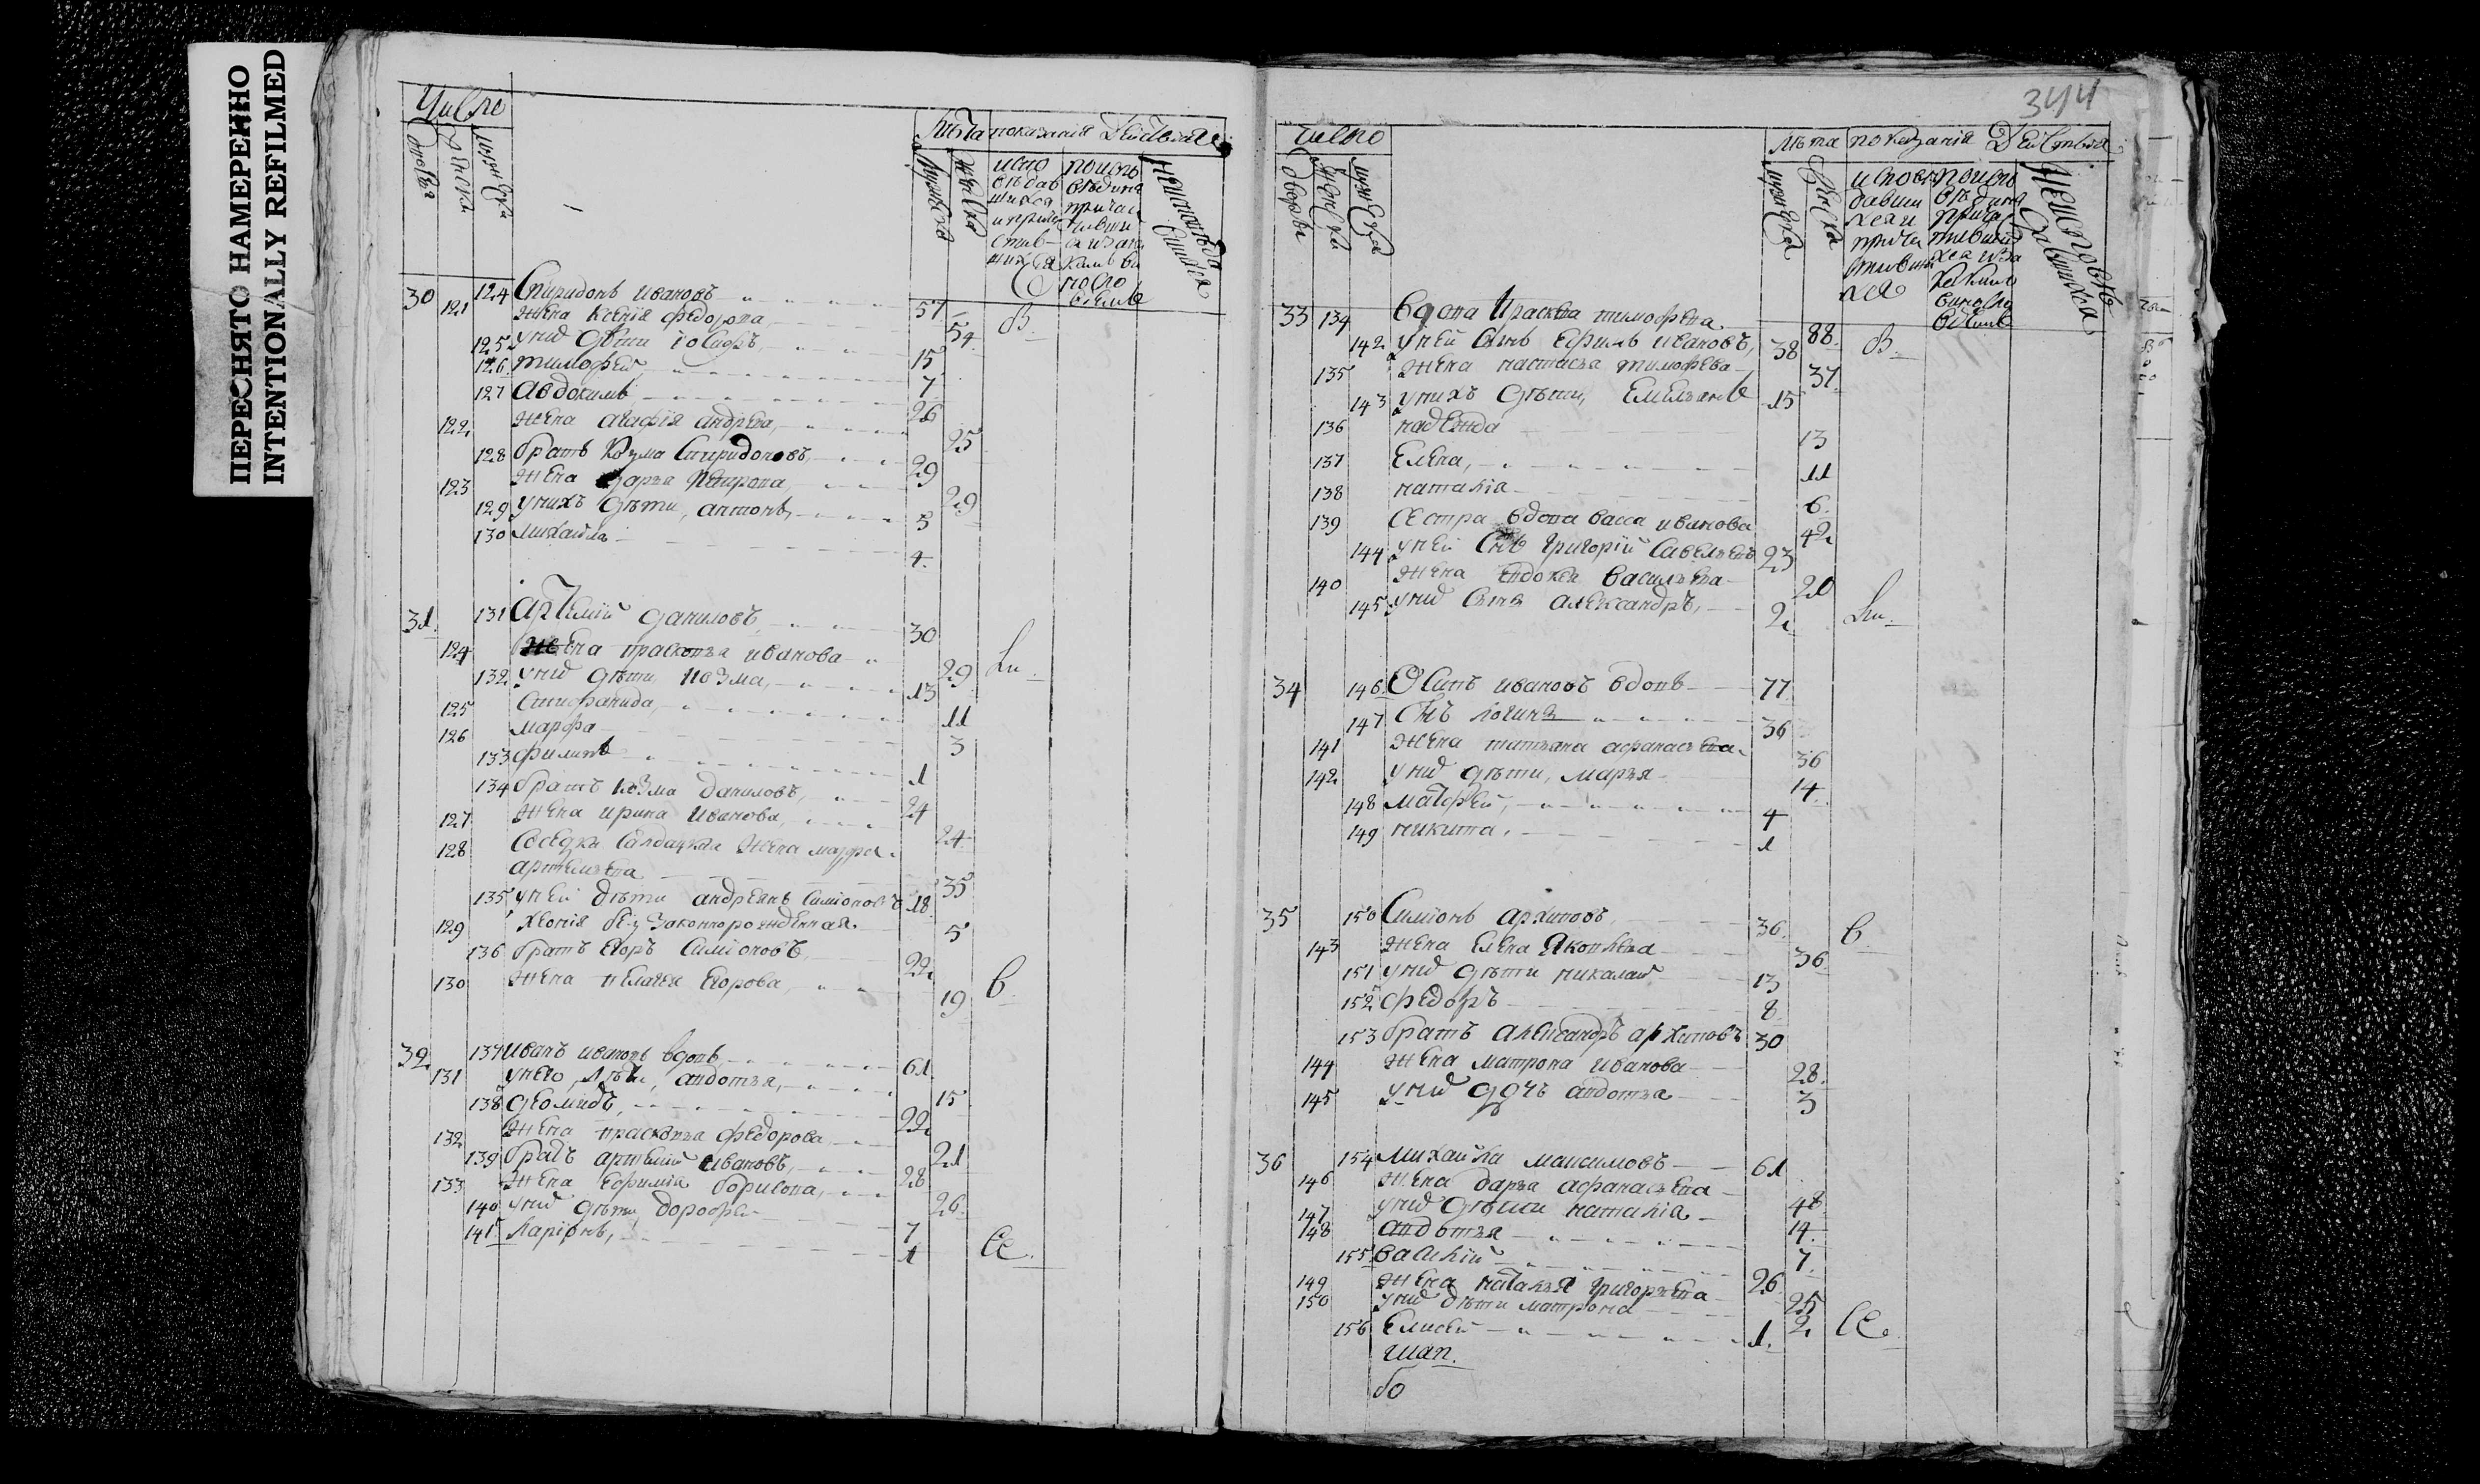 ПЕРЕСНЯТО НАМЕРЕННО
INTENTIONALLY REFILMED
Число
Лѣта показанiя Действа
мужеска
женска
30 124 Спиридонъ Ивановъ 57
121 жена Ксенiя Федорова 54 В.
125 у нид дѣти Iосифъ 15
126 тимофей 7
127 Авдокимъ 26
122 жена агафiя андрева 25
128 братъ Козма Спиридоновъ 29
123 жена дарья Петрова 29
129 у нихъ дѣти, антонъ 5
130 михайла 4
31 131 Артемiй даниловъ 30
124 жена прасковья иванова 29 Ли.
132 у нид дѣти козма 13
125 Стифанида 11
126 марфа 3
133 филипъ 1
134 братъ козма даниловъ 24
127 жена ирина иванова 24
128 соседки салдацкая жена марфа
артемьева 35
135 у ней дѣти андреянъ Симiоновъ 18
129 хеонiя без законнорожденная 5
136 братъ Егоръ Симiоновъ 22
130 жена пелагея Егорова 19 в
32 137 иванъ ивановъ вдовъ 61
131 у него дѣти, авдотья 15
138 деомидъ 22
132 жена прасковья федорова 21
139 братъ артемiй ивановъ 28
133 жена Ефимiя борисова 26
140 у нид дѣти дорофей 7
141 Ларiонъ 1
344
число
лѣта показанiя Действа
дворовъ
мужеска
33 134 вдова Прасковья тимофева 88
142 у ней сынъ Ефимъ ивановъ 38 В.
135 жена настасья тимофева 37
143 у нихъ дѣти, Емельянъ 15
136 надежда 13
137 Елена 11
138 наталiа 6
139 сестра вдова васса иванова 42
144 у ней снъ григорiй савельевъ 23
140 жена Евдокея васильева 20
145 у нид сынъ александръ 2 Ли.
34 146 Осипъ ивановъ вдовъ 77
147 снъ логинъ 36
141 жена татьяна афанасьева 36
142 у нид дѣти, марья 14
148 матфей 4
149 никита 1
35 150 Симiонъ архиповъ 36 в
143 жена Елена Яковлева 36
151 у нид дѣти николай 13
152 федоръ 8
153 братъ александръ архиповъ 30
144 жена матрона иванова 28
145 у нид дочь авдотья 3
36 154 михайла максимовъ 61
146 жена дарья афанасьева 48
147 у нид дѣти наталiа 14
148 авдотья 7
155 василiй 26
149 жена наталья григорьева 25
150 у нид дѣти матрона 2
156 Елисей 1